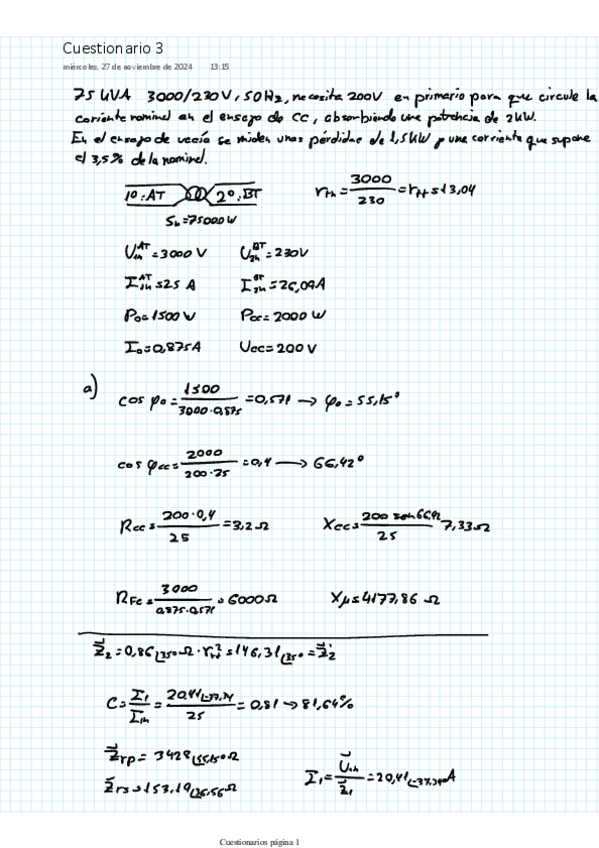 Cuestionario 3
miércoles, 27 de noviembre de 2024 13:15
75 kVA 3000/230V, 50Hz, necesita 200V en primario para que circule la
coriente nominal en el ensayo de CC, absorbiendo una potencia de 2kW.
En el ensayo de vacío se miden unas pérdidas de 1,5kW y una corriente que supone
el 3,5% de la nominal.
1º:AT 2º:BT rₜₕ = 3000/230 = rₜₜ = 13,04
Sₙ=75000W
U₁ₙᴬᵀ = 3000 V U₂ₙᴮᵀ = 230V
I₁ₙᴬᵀ = 25 A I₂ₙᴮᵀ = 26,09A
P₀ = 1500 W Pcc = 2000 W
I₀ = 0,875A Ucc = 200 V
a) cos φ₀ = 1500/(3000·0,875) = 0,571 → φ₀ = 55,15º
cos φcc = 2000/(200·25) = 0,4 → 66,42º
Rcc = 200·0,4/25 = 3,2 Ω Xcc = 200 sen 66,42/25 7,33 Ω
RFe = 3000/(0,875·0,571) = 6000 Ω Xμ = 4177,86 Ω
Z⃗₂ = 0,86∠35º Ω · rₜₜ² = 146,31∠35º = Z⃗₂'
C = I₁/I₁ₙ = 20,41∠-37,24/25 = 0,81 → 81,64%
Z⃗rp = 3428∠55,15º Ω
Z⃗rs = 153,19∠36,56º Ω I₁ = U⃗₁ₙ/Z⃗₁ = 20,41∠-37,24º A
Cuestionarios página 1